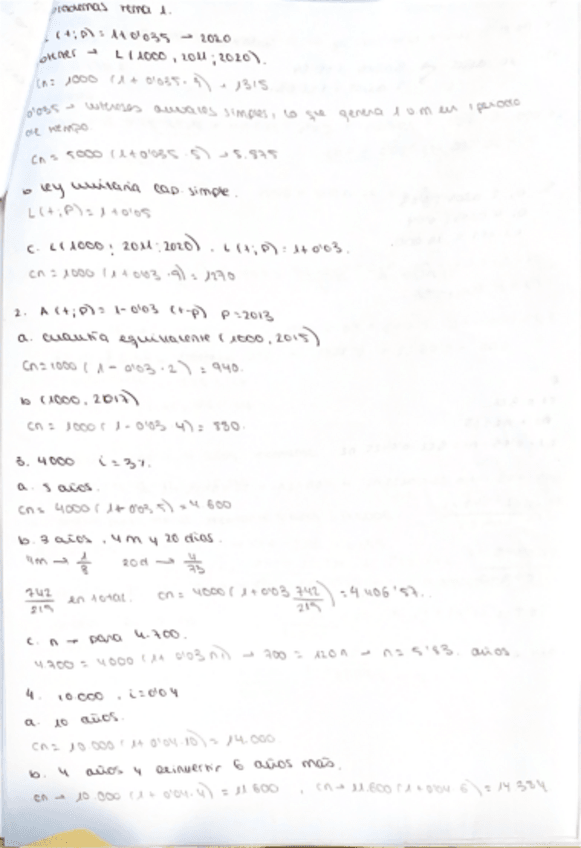 tema 1.
L(t;p)= 1+0'035 → 2020
→ L(1000, 2011; 2020).
Cn= 1000 (1+0'035·9) → 1315
0'035 → intereses anuales simples, lo que genera 1 um en 1 periodo
de tiempo.
Cn = 5000 (1+0'035·5) → 5.875
b ley unitaria cap. simple.
L(t;p)= 1+0'05
c. L(1000; 2011; 2020). L(t;p)= 1+0'03.
Cn = 1000 (1+0'03·9) = 1270
2. A(t;p)= 1-0'03 (t-p) p=2013
a. cuantía equivalente (1000, 2015)
Cn=1000 (1-0'03·2) = 940.
b (1000, 2017)
Cn = 1000 (1-0'03 4) = 880.
3. 4000 i=3%.
a. 5 años.
Cn= 4000 (1+0'03,5) = 4 600
b. 3 años, 4m y 20 dias.
4m → 1/3 20d → 4/73
742/219 en total. Cn= 4000 (1+0'03 742/219) = 4 406'57..
c. n → para 4.700.
4.700 = 4000 (1+ 0'03 n) → 700 = 120n → n= 5'83. años
4. 10.000, i=0'04
a. 10 años.
Cn= 10.000 (1+0'04.10) = 14.000
b. 4 años y reinvertir 6 años más.
Cn → 10.000 (1+0'04.4) = 11.600, Cn → 11.600 (1+0'04 6) = 14.384